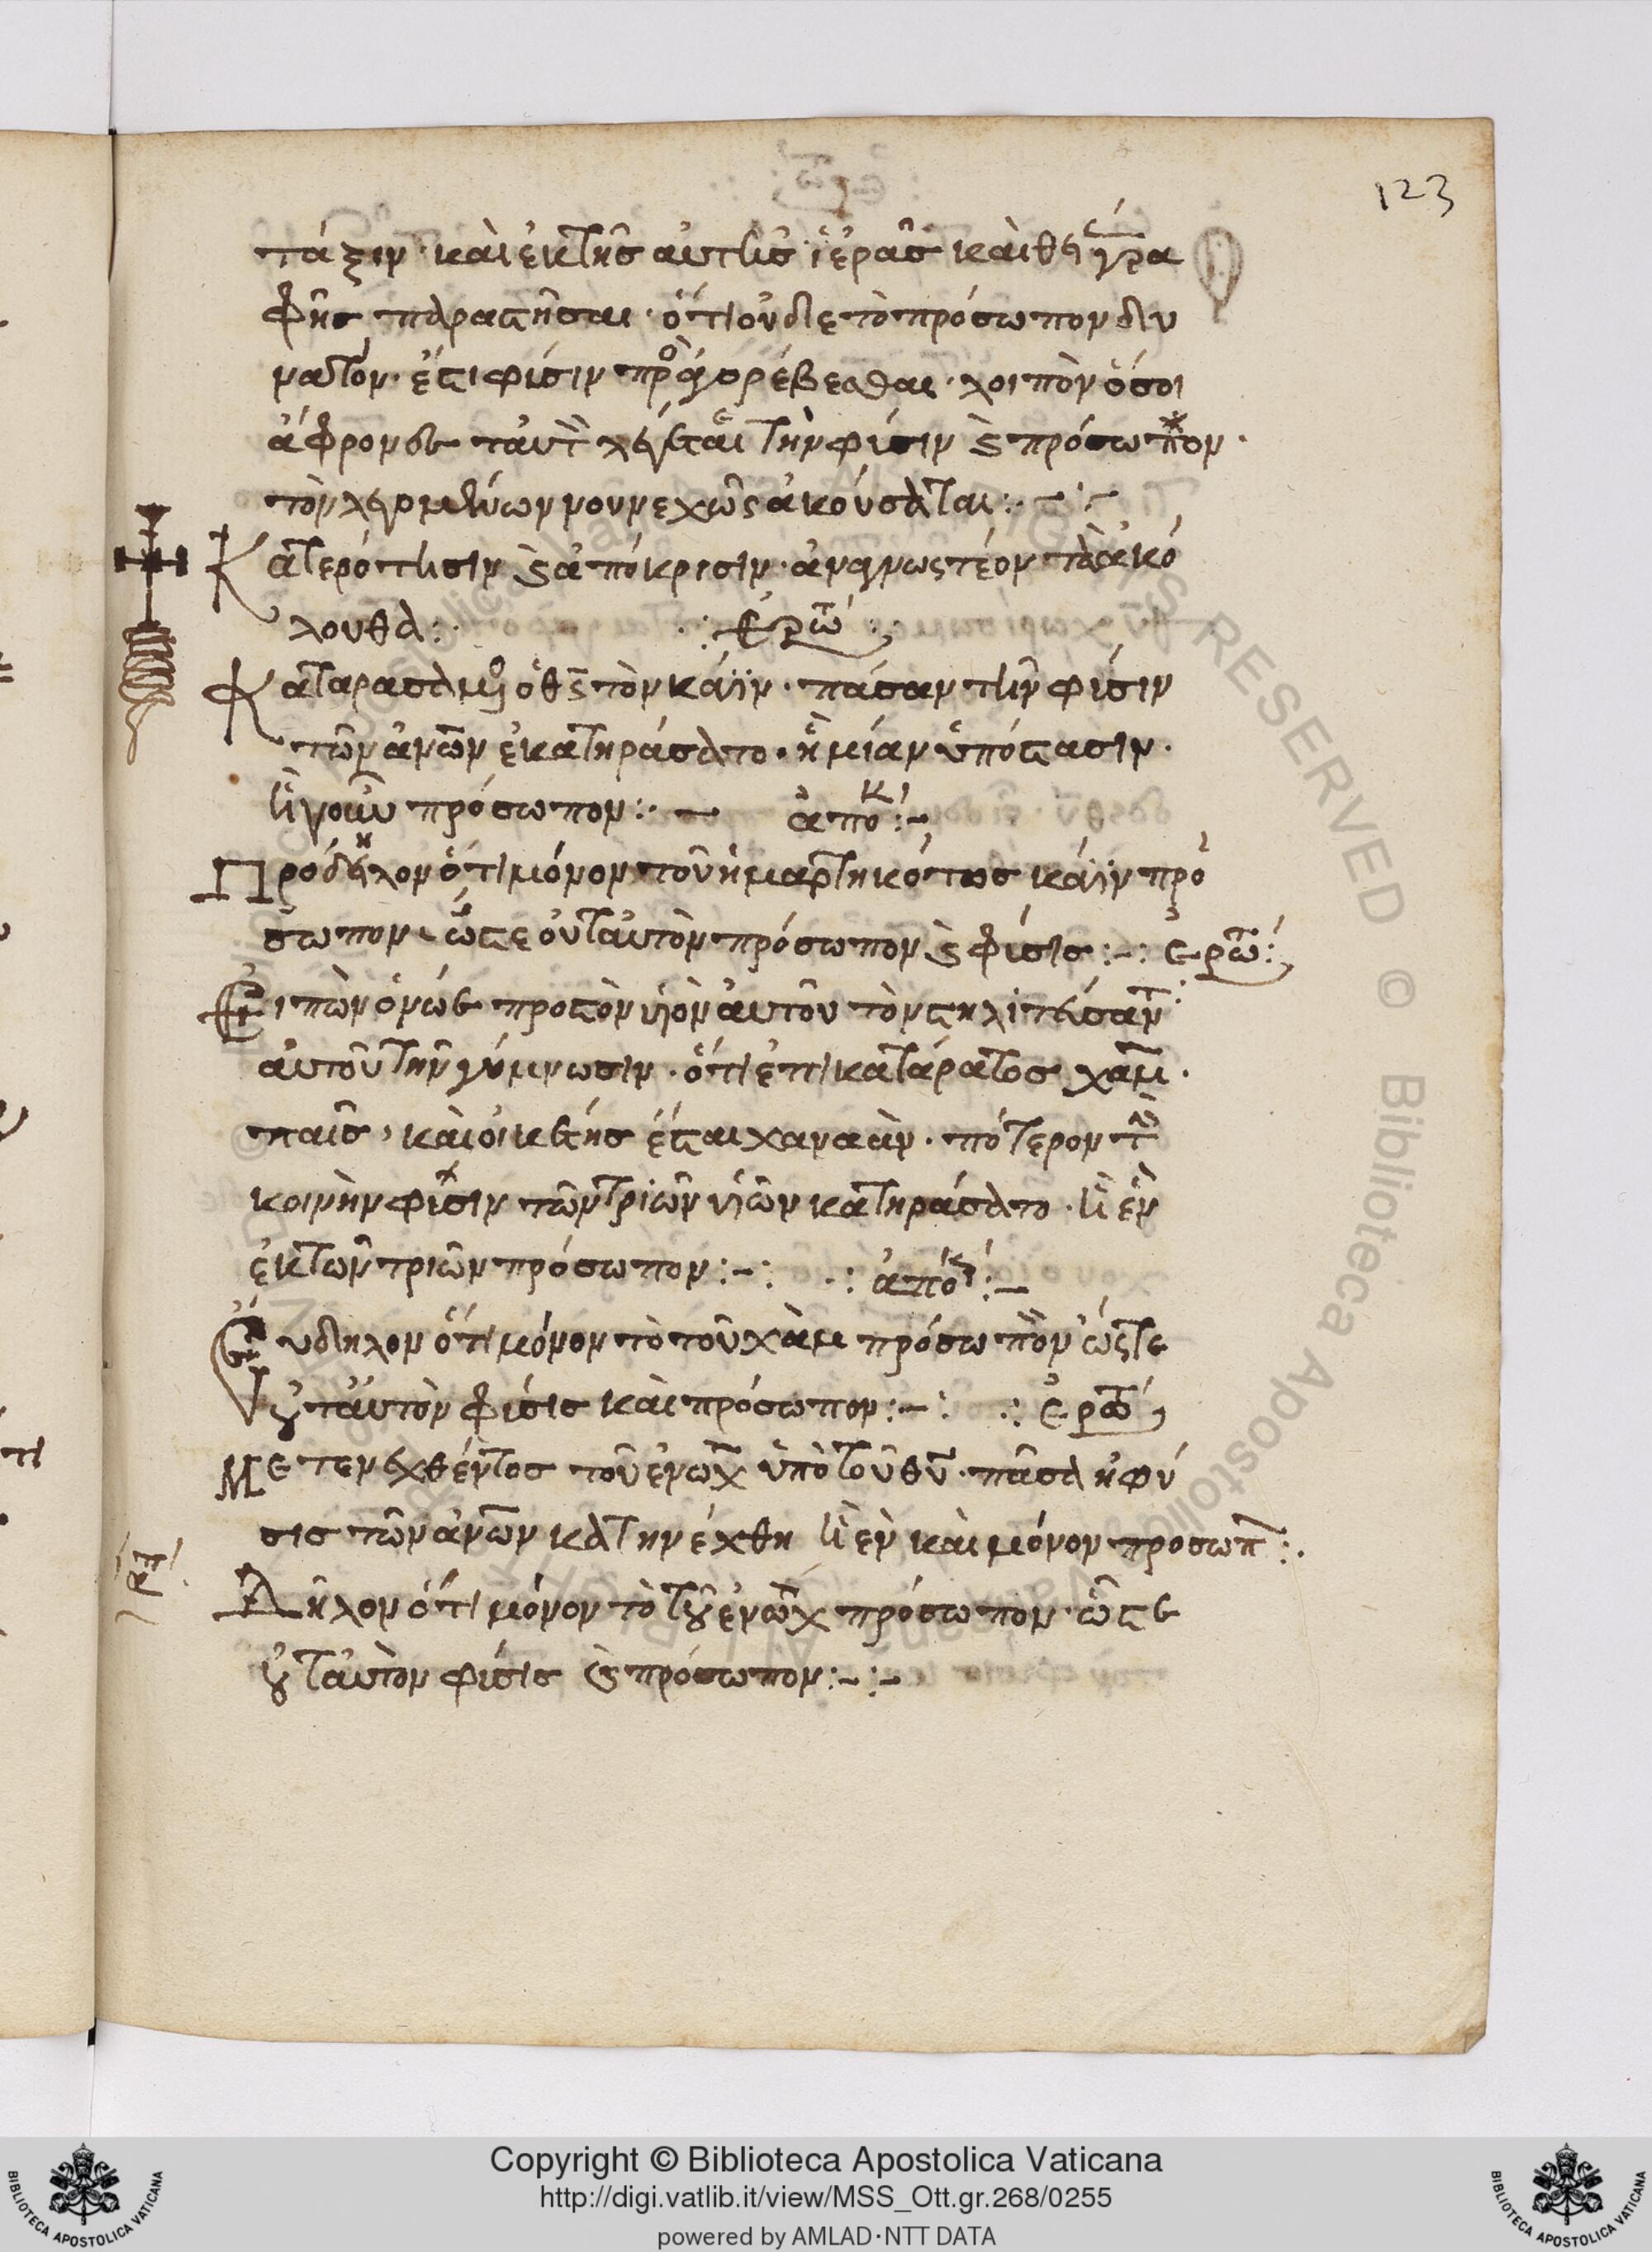 123
τάξιν · καὶ ἐκ τῆς αὐτῆς ἱερᾶς καὶ θεί γρα
φῆς παραστῆσαι · ὅτι οὐδὲ τὸ πρόσωπον δυ
νατόν · ἔτι φύσιν λοιπὸν ὅσοι
ἄφρονες ταυτ τὴν φύσιν ϗ πρόσωπον ·
τὸν νουνεχῶς ἀκούσαται :· – · –
Κατερότησιν ϗ ἀπόκρισιν · ἀναγνωστέον τὰ ἀκό
λουθα :· ·: ἐρωτ
Καταρασάμο ὁ θς τὸν κάϊν · πάσαν τὴν φύσιν
τῶν ἀνων ἐκατηράσατο · ἢ μίαν ὑπόστασιν ·
ἤγουν πρόσωπον :· – ἀποκ :–
Πρόδηλον ὅτι μόνον τοῦ ἡμαρτηκότος κάϊν πρό
σωπον · ὥστε οὐ ταυτὸν πρόσωπον ϗ φύσις :–: ἐρωτ :
Εἰπὼν ὁ νῶε προς τὸν υἱὸν αὐτοῦ τὸν στηλιτεύσαντ
αὐτοῦ τὴν γύμνωσιν · ὅτι ἐπικατάρατος χαμ ·
παῖς, καὶ οἰκέτης ἔσται χαναὰν · πότερον τὴν
κοινὴν φύσιν τῶν τριῶν υἱῶν κατηράσατο · ἢ ἓν
ἐκ τῶν τριῶν πρόσωπον :–: ·: ἀποκ :–
Εὔδηλον ὅτι μόνον τὸ τοῦ χὰμ πρόσωπον ὥστε
οὐ ταυτὸν φύσις καὶ πρόσωπον :–: ·: ἐρωτ
Μετενεχθέντος τοῦ ἐνωχ ὑπὸ τοῦ θυ · πᾶσα ἡ φύ
σις τῶν ἀνων κατηνέχθη ἢ ἓν καὶ μόνον προσωπ :·
Δῆλον ὅτι μόνον τὸ τοῦ ἐνωχ πρόσωπον · ὥστε
οὐ ταυτὸν φύσις ϗ πρόσωπον :–:–
Copyright © Biblioteca Apostolica Vaticana
http://digi.vatlib.it/view/MSS_Ott.gr.268/0255
powered by AMLAD·NTT DATA